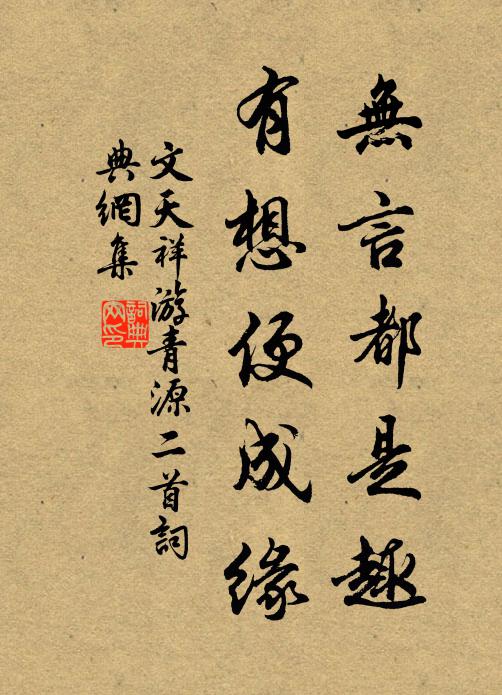 無言都是趣
有想便成緣
文天祥游青源二首詞
典網集
詞典
网印